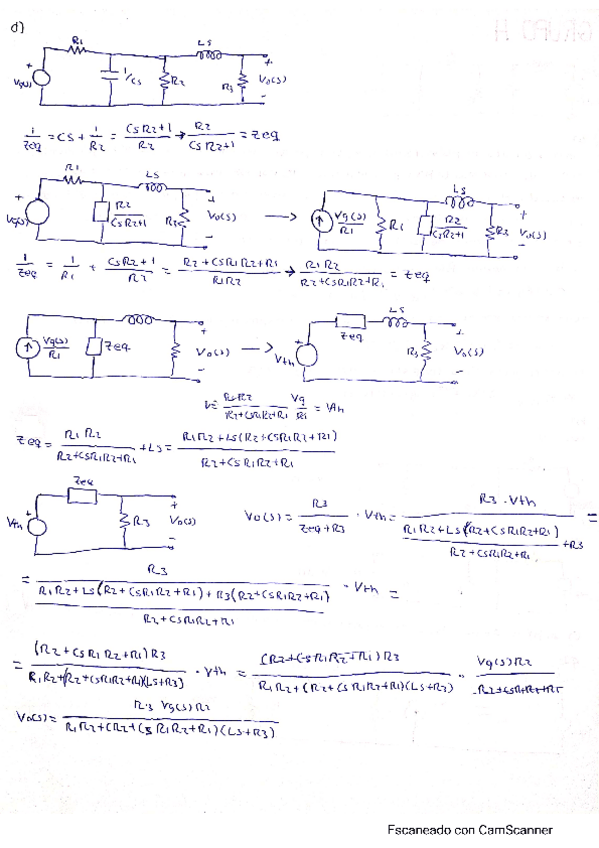 GRUPO H
d)
R1 LS
Vg(s) 1/CS R2 R3 Vo(s)
1/Zeq = CS + 1/R2 = (CSR2+1)/R2 → R2/(CSR2+1) = Zeq
R1 LS LS
Vg(s) R2/(CSR2+1) R3 Vo(s) → Vg(s)/R1 R1 R2/(CSR2+1) R3 Vo(s)
1/Zeq = 1/R1 + (CSR2+1)/R2 = (R2+CSR1R2+R1)/(R1R2) → R1R2/(R2+CSR1R2+R1) = Zeq
LS
Vg(s)/R1 Zeq Vo(s) → Vth Zeq R3 Vo(s)
V= R1R2/(R2+CSR1R2+R1) Vg/R1 = Vth
Zeq = R1R2/(R2+CSR1R2+R1) + LS = (R1R2+LS(R2+CSR1R2+R1))/(R2+CSR1R2+R1)
Zeq
Vth R3 Vo(s) Vo(s) = R3/(Zeq+R3) · Vth = R3 · Vth/((R1R2+LS(R2+CSR1R2+R1))/(R2+CSR1R2+R1) + R3) =
= R3/((R1R2+LS(R2+CSR1R2+R1)+R3(R2+CSR1R2+R1))/(R2+CSR1R2+R1)) · Vth =
= (R2+CSR1R2+R1)R3/(R1R2+(R2+CSR1R2+R1)(LS+R3)) · Vth = (R2+CSR1R2+R1)R3/(R1R2+(R2+CSR1R2+R1)(LS+R3)) · Vg(s)R2/
Vo(s) = R3 Vg(s) R2/(R1R2+(R2+CSR1R2+R1)(LS+R3))
Escaneado con CamScanner